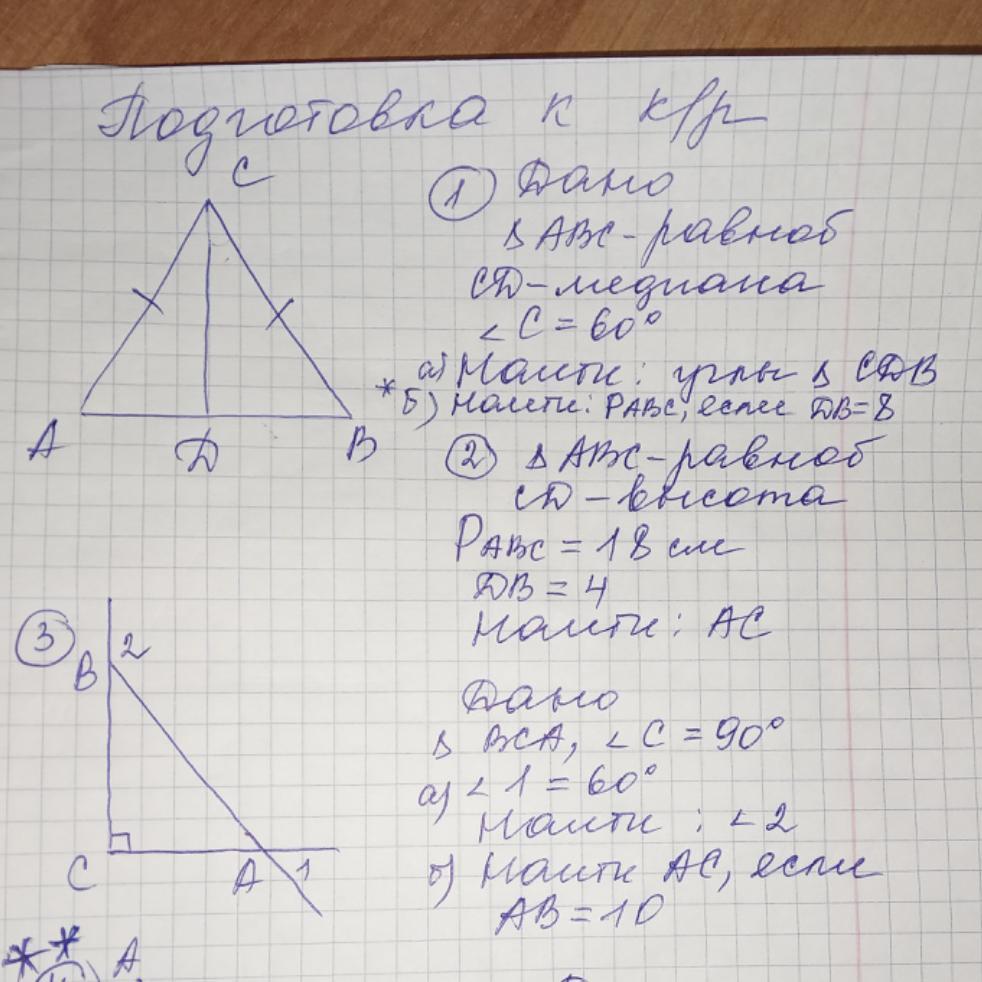 Подготовка к к/р
C
A D B
1 Дано
Δ ABC - равноб
CD - медиана
∠ C = 60°
а) Найти: углы Δ CDB
* б) Найти: PABC, если DB = 8
2 Δ ABC - равноб
CD - высота
PABC = 18 см
DB = 4
Найти: AC
3
B 2
C A 1
Дано
Δ BCA, ∠ C = 90°
а) ∠ 1 = 60°
Найти: ∠ 2
б) Найти AC, если
AB = 10
* * A